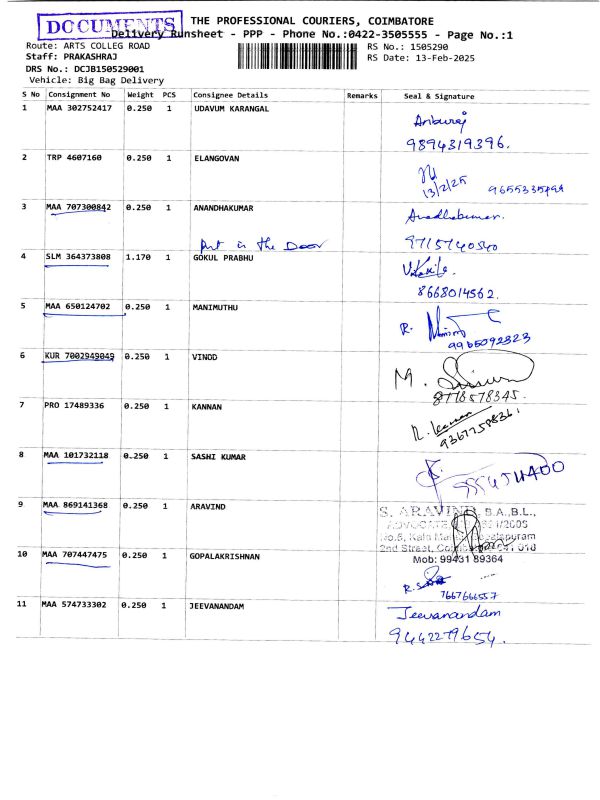 DOCUMENTS
THE PROFESSIONAL COURIERS, COIMBATORE
Delivery Runsheet - PPP - Phone No.:0422-3505555 - Page No.:1
Route: ARTS COLLEG ROAD
RS No.: 1505290
Staff: PRAKASHRAJ
RS Date: 13-Feb-2025
DRS No.: DCJB150529001
Vehicle: Big Bag Delivery
S No Consignment No Weight PCS Consignee Details Remarks Seal & Signature
1 MAA 302752417 0.250 1 UDAVUM KARANGAL
Anburaj
9894319396.
2 TRP 4607160 0.250 1 ELANGOVAN
13/2/25
3 MAA 707300842 0.250 1 ANANDHAKUMAR
Anandhakumar.
Put in the Door
9715740540
4 SLM 364373808 1.170 1 GOKUL PRABHU
8668014562.
5 MAA 650124702 0.250 1 MANIMUTHU
R.
9965092323
6 KUR 7002949049 0.250 1 VINOD
M.
8778578345.
7 PRO 17489336 0.250 1 KANNAN
R. Kannan
9367758361
8 MAA 101732118 0.250 1 SASHI KUMAR
9 MAA 869141368 0.250 1 ARAVIND
S. ARAVIND, B.A.,B.L.,
ADVOCATE
2nd Street,
Mob: 99431 89364
10 MAA 707447475 0.250 1 GOPALAKRISHNAN
7667666557
11 MAA 574733302 0.250 1 JEEVANANDAM
Jeevanandam
9442279654.